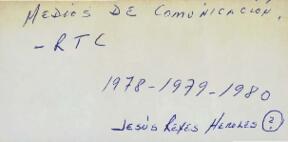 MEDIOS DE COMUNICACION.
- RTC
1978-1979-1980
JESÚS REYES HEROLES (?)